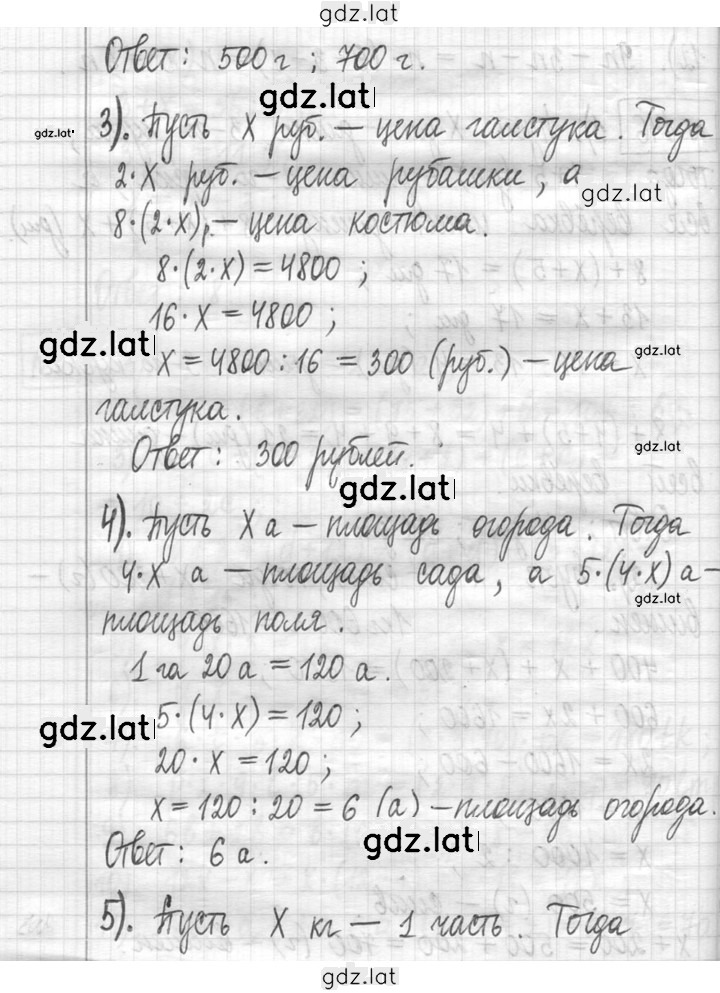 gdz.lat
Ответ: 500 г ; 700 г.
gdz.lat
gdz.lat
3). Пусть X руб. — цена галстука. Тогда
2·X руб. — цена рубашки, а
gdz.lat
8·(2·X)р. — цена костюма.
8·(2·X) = 4800 ;
16·X = 4800 ;
gdz.lat
gdz.lat
X = 4800 : 16 = 300 (руб.) — цена
галстука.
gdz.lat
Ответ: 300 рублей.
gdz.lat
4). Пусть X а — площадь огорода. Тогда
4·X а — площадь сада, а 5·(4·X) а —
gdz.lat
площадь поля.
1 га 20 а = 120 а.
gdz.lat
5·(4·X) = 120 ;
20·X = 120 ;
X = 120 : 20 = 6 (а) — площадь огорода.
gdz.lat
Ответ: 6 а.
5). Пусть X кг — 1 часть. Тогда
gdz.lat